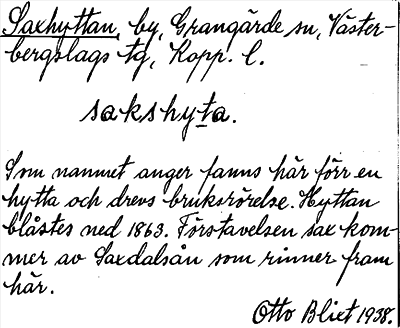 Saxhyttan, by, Grangärde sn, Väster-
bergslags tg, Kopp. l.
sakshyta.
Som namnet anger fanns här förr en
hytta och drevs bruksrörelse. Hyttan
blåstes ned 1863. Förstavelsen sax kom-
mer av Saxdalsån som rinner fram
här.
Otto Blixt 1938.